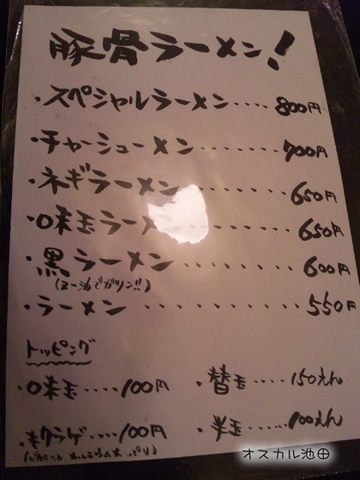 豚骨ラーメン!
・スペシャルラーメン‥‥800円
・チャーシューメン‥‥‥700円
・ネギラーメン‥‥‥‥650円
・味玉ラーメン‥‥‥‥650円
・黒ラーメン‥‥‥‥‥600円
(マー油でガツン!!)
・ラーメン‥‥‥‥‥‥550円
トッピング
・味玉‥‥100円
・替玉‥‥‥150えん
・キクラゲ‥‥100円
・半玉‥‥‥100えん
オスカル池田